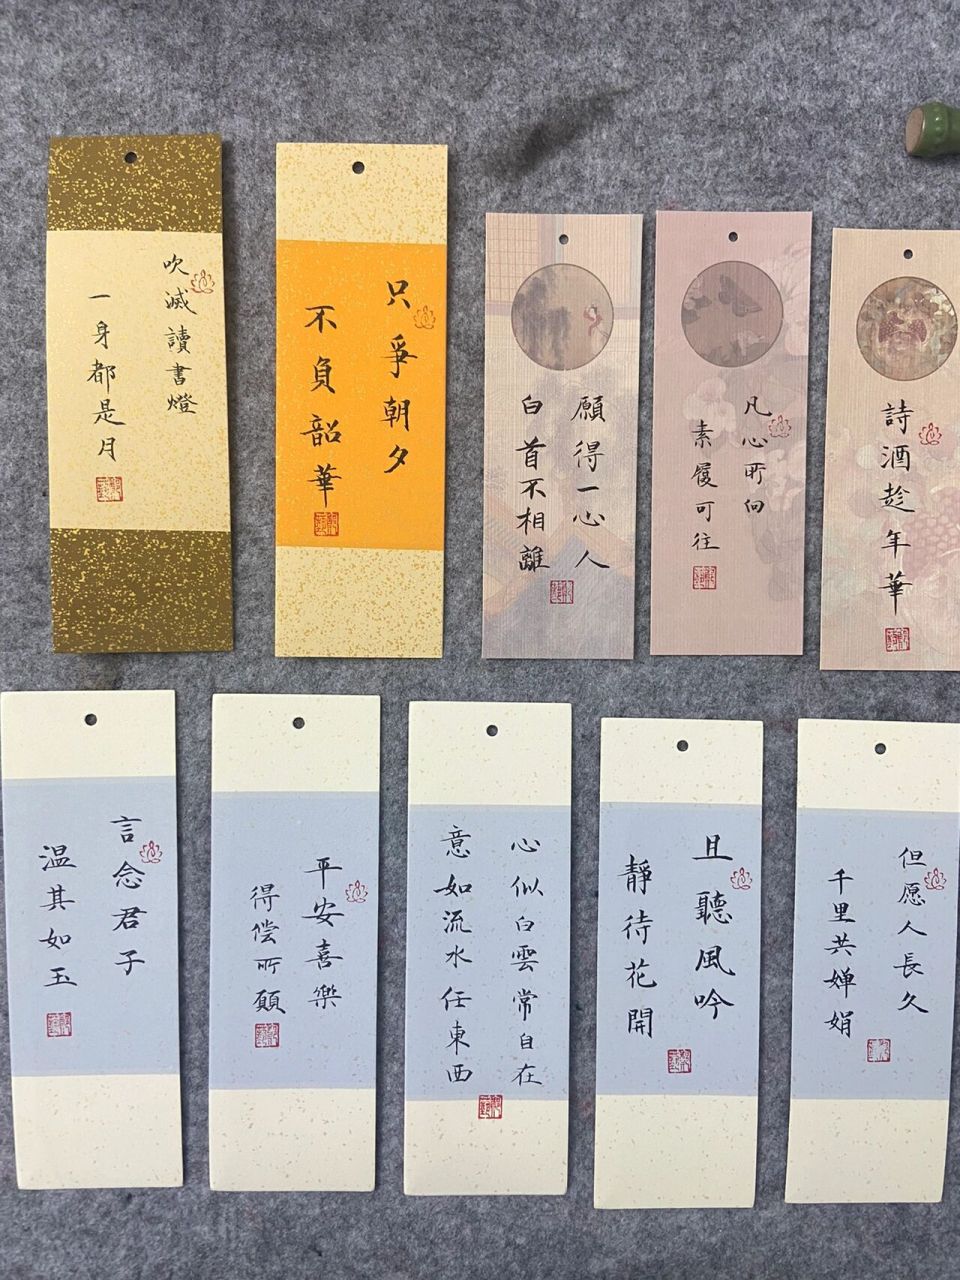 吹滅讀書燈
一身都是月
只爭朝夕
不負韶華
願得一心人
白首不相離
凡心所向
素履可往
詩酒趁年華
言念君子
温其如玉
平安喜樂
得偿所願
心似白雲常自在
意如流水任東西
且聽風吟
靜待花開
但愿人長久
千里共婵娟